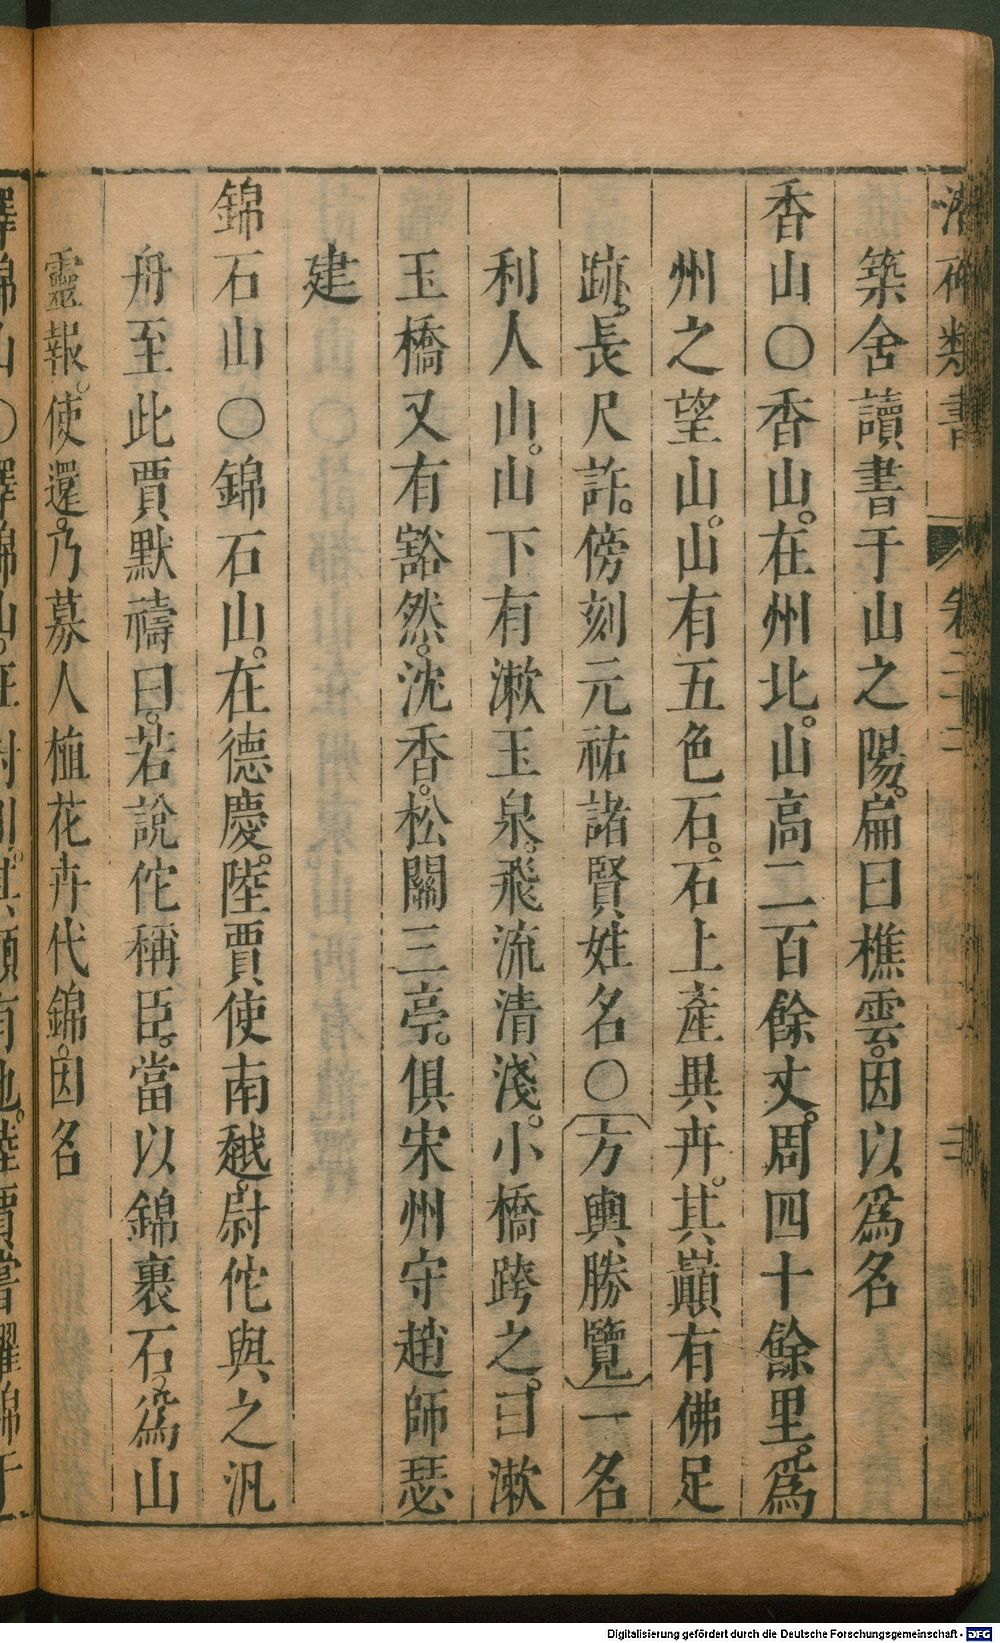 潛確類書 卷二十二
築舍讀書于山之陽。扁曰樵雲。因以爲名
香山〇香山。在州北。山高二百餘丈。周四十餘里。爲
州之望山。山有五色石。石上產異卉。其巔有佛足
跡。長尺許。傍刻元祐諸賢姓名〇〔方輿勝覽〕一名
利人山。山下有漱玉泉。飛流清淺。小橋跨之。曰漱
玉橋又有豁然。沈香。松關三亭。俱宋州守趙師瑟
建
錦石山〇錦石山。在德慶。陸賈使南越。尉佗與之汎
舟至此賈默禱曰。若說佗稱臣。當以錦裹石。爲山
靈報。使還。乃募人植花卉代錦。因名
Digitalisierung gefördert durch die Deutsche Forschungsgemeinschaft - DFG